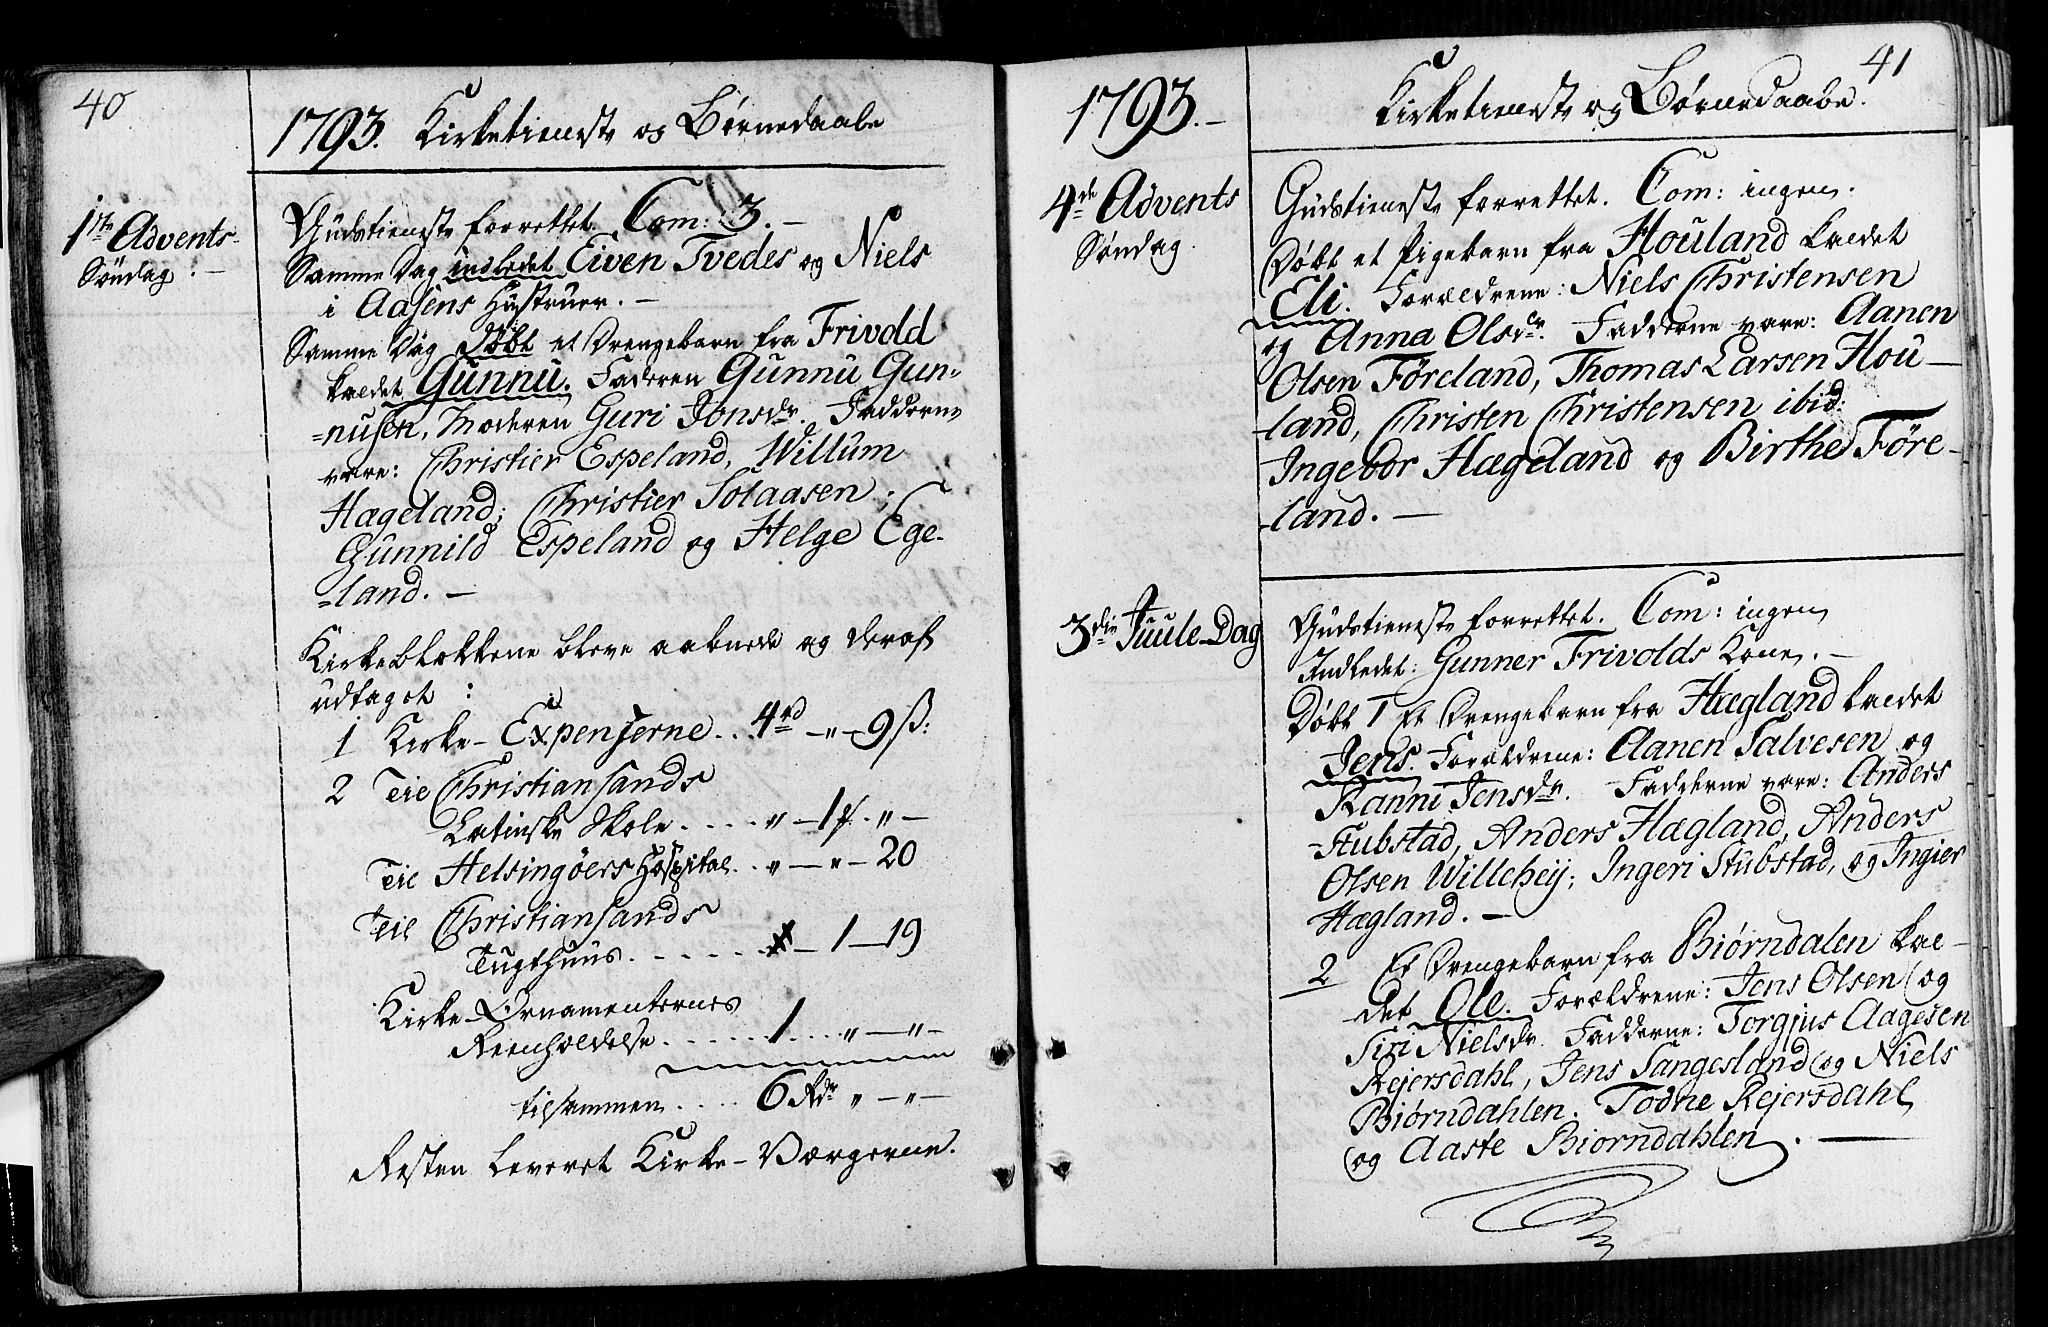 40
1793. Kirketieneste og Børnedaabe
1ste Advents-
Søndag. -
Gudstieneste forrettet. Com: 3. -
Samme Dag indledet Eiven Tvedes og Niels
i Aasens Hustruer. -
Samme Dag døbt et Drengebarn fra Frivold
kaldet Gunnu. Faderen Gunnu Gun=
=nusen, Moderen Guri Jonsdr. Fadderne
vare: Christier Espeland, Willum
Hægeland; Christier Solaasen;
Gunnild Espeland og Helge Ege-
=land. -
Kirkeblokkene bleve aabnede og deraf
udtaget:
1 Kirke-Expenserne.. 4rd - " - 9 ß:
2 Til Christiansands
Latinske Skole.... " - 1 . " -
Til Helsingøers Hospital.. " - " - 20
Til Christiansands
Tugthuus...... - 1 - 19
Kirke-Ornamenternes
Reenholdelse...... 1... " - " -
tilsammen.... 6 Rdr " - " -
Resten leveret Kirke-Værgerne.
41
1793. -
Kirketieneste og Børnedaabe.
4de Advents
Søndag.
Gudstieneste forrettet. Com: ingen.
Døbt et Pigebarn fra Houland kaldet
Eli. Forældrene: Niels Christensen
og Anna Olsdr. Fadderne vare: Aanen
Olsen Føreland, Thomas Larsen Hou-
-land, Christen Christensen ibid:
Ingebor Hægeland og Birthe Føre-
-land. -
3die Juule-Dag
Gudstieneste forrettet. Com: ingen
Indledet: Gunner Frivolds Kone. -
Døbt 1 Et Drengebarn fra Hægland kaldet
Jens. Forældrene: Aanen Salvesen og
Ranni Jensdr. Fadderne vare: Anders
Stubstad, Anders Hægland, Anders
Olsen Willeheij; Ingeri Stubstad, og Ingier
Hægland. -
2 Et Drengebarn fra Biørndalen kal-
det Ole. Forældrene: Jens Olsen og
Siri Nielsdr. Fadderne: Torgius Aagesen
Rejersdahl, Jens Sangesland og Niels
Biørndahlen. Todne Rejersdahl
og Aaste Biørndahlen. -